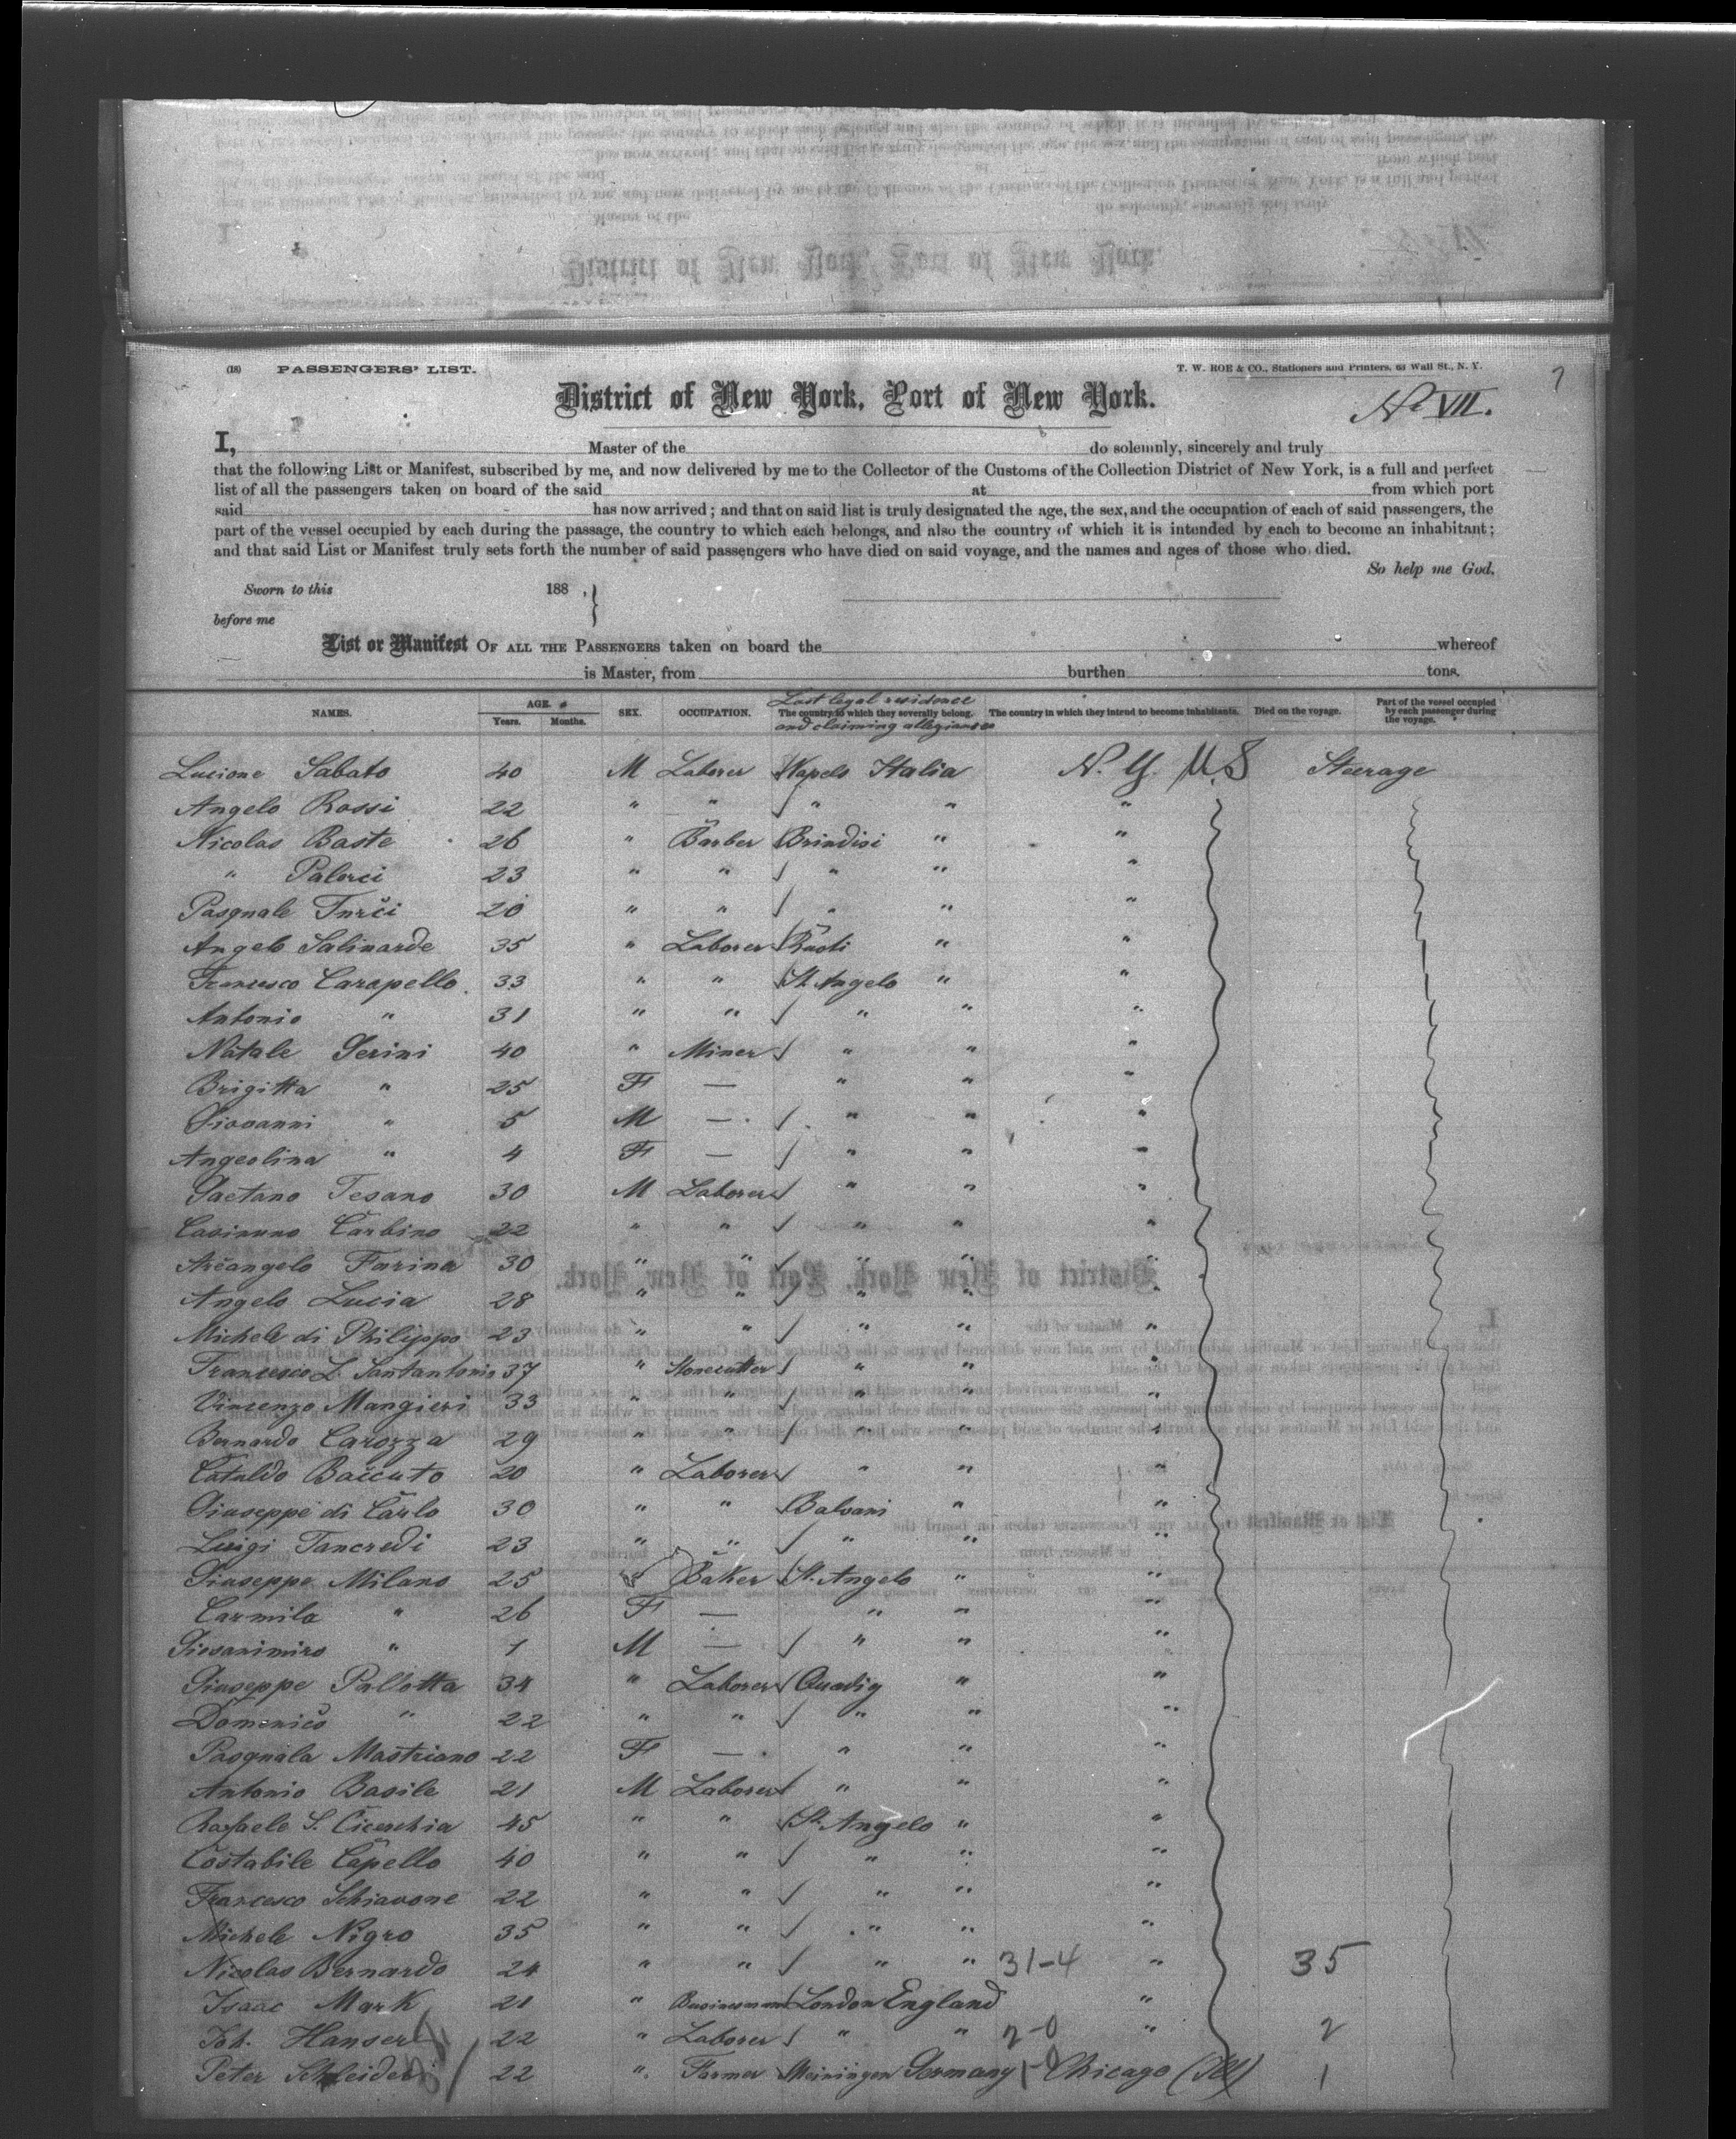 (18) PASSENGERS' LIST. T. W. ROE & CO., Stationers and Printers, 63 Wall St., N. Y.
District of New York, Port of New York.
No VII.
I, Master of the do solemnly, sincerely and truly
that the following List or Manifest, subscribed by me, and now delivered by me to the Collector of the Customs of the Collection District of New York, is a full and perfect
list of all the passengers taken on board of the said at from which port
said has now arrived; and that on said list is truly designated the age, the sex, and the occupation of each of said passengers, the
part of the vessel occupied by each during the passage, the country to which each belongs, and also the country of which it is intended by each to become an inhabitant;
and that said List or Manifest truly sets forth the number of said passengers who have died on said voyage, and the names and ages of those who died.
So help me God.
Sworn to this 188 ,
before me
List or Manifest OF ALL THE PASSENGERS taken on board the whereof
is Master, from burthen tons.
NAMES. AGE. Years. Months. SEX. OCCUPATION. Last legal residence The country to which they severally belong. and claiming allegiance The country in which they intend to become inhabitants. Died on the voyage. Part of the vessel occupied by each passenger during the voyage.
Lucione Sabato 40 M Laborer Napels Italia N. Y. U.S Steerage
Angelo Rossi 22 " " " " "
Nicolas Baste 26 " Barber Brindisi " "
" Palerci 23 " " " " "
Pasquale Turci 20 " " " " "
Angelo Salinarde 35 " Laborer Ruoti " "
Francesco Carapello 33 " " St. Angelo " "
Antonio " 31 " " " " "
Natale Serini 40 " Miner " " "
Brigitta " 25 F — " " "
Giovanni " 5 M — " " "
Angeolina " 4 F — " " "
Gaetano Tesano 30 M Laborer " " "
Carbino 22 " " " " "
Arcangelo Farina 30 " " " " "
Angelo Lucia 28 " " " " "
Michele di Philippo 23 " " " " "
Francesco L. Santantonio 37 " Stonecutter " " "
Vincenzo Mangieri 33 " " " " "
Bernardo Carozza 29 " " " " "
Cataldo Baccuto 20 " Laborer " " "
Giuseppe di Carlo 30 " " Balvani " "
Luigi Tancredi 23 " " " " "
Giuseppe Milano 25 Baker St. Angelo " "
Carmila " 26 F — " " "
" 1 M — " " "
Giuseppe Pallotta 34 " Laborer " "
Domenico " 22 " " " " "
Pasquala Mastriano 22 F — " " "
Antonio Basile 21 M Laborer " " "
Rafaele S. Cicerchia 45 " " St. Angelo " "
Costabile Capello 40 " " " " "
Francesco Schiavone 22 " " " " "
Michele Nigro 35 " " " " "
Nicolas Bernardo 24 " " " " 31-4 " 35
Isaac Mark 21 " Businessman London England "
Joh. Hanser 22 " Laborer " " 2-0 " 2
Peter Schleider 22 " Farmer Meiningen Germany 1-0 Chicago (Ill) 1